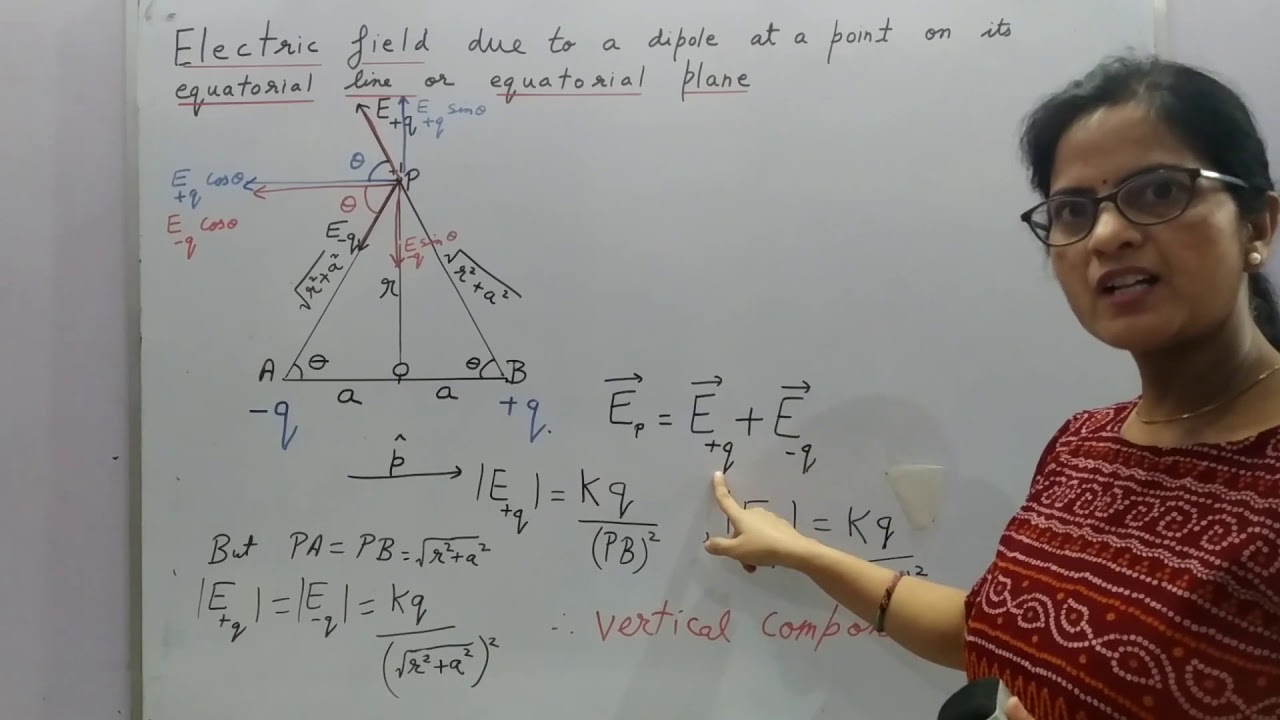 Electric field due to a dipole at a point on its
equatorial line or equatorial plane
E+q
E+q sinθ
θ
P
E+q cosθ
θ
E-q cosθ
E-q
E-q sinθ
√r²+a²
r
√r²+a²
A
θ
O
θ
B
a
a
-q
+q.
E⃗p = E⃗+q + E⃗-q
p̂
|E+q| = Kq/(PB)²
| = Kq
But PA = PB = √r²+a²
|E+q| = |E-q| = Kq/(√r²+a²)²
∴ vertical